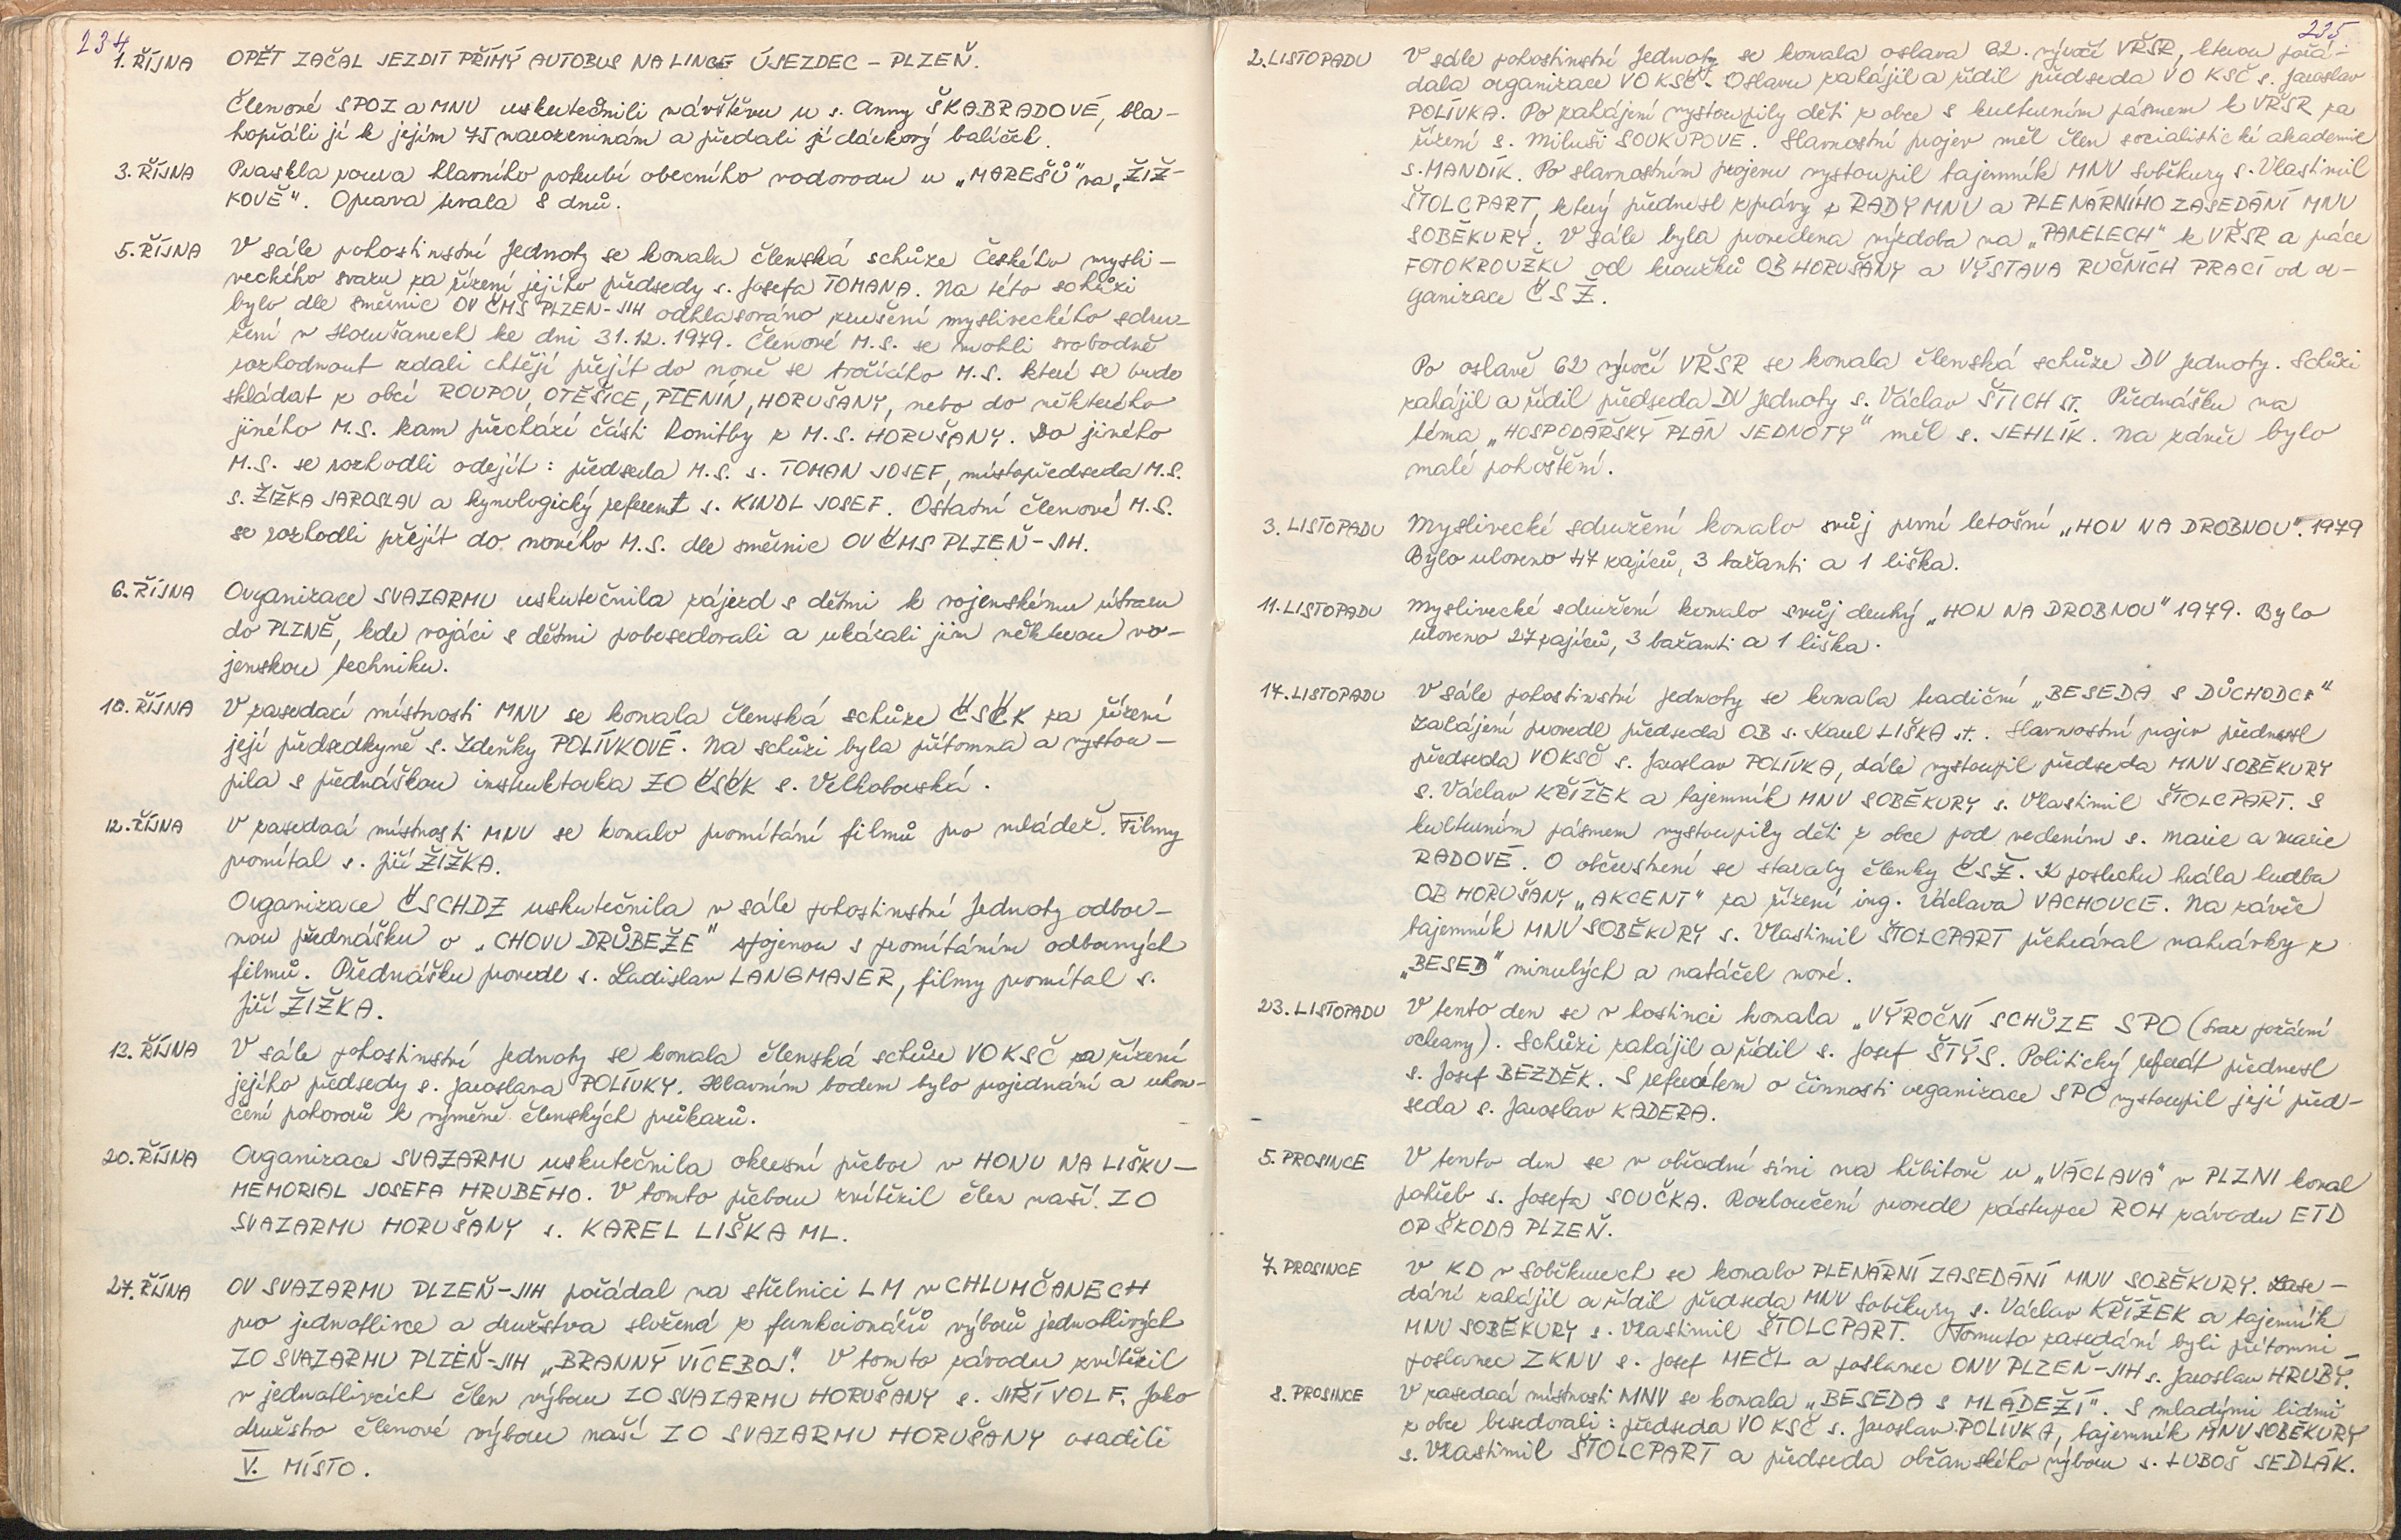 234
1. ŘÍJNA OPĚT ZAČAL JEZDIT PŘÍMÝ AUTOBUS NA LINCE ÚJEZDEC - PLZEŇ.
Členové SPOZ a MNV uskutečnili návštěvu u s. Anny ŠKABRADOVÉ, bla-
hopřáli jí k jejím 75 narozeninám a předali jí dárkový balíček.
3. ŘÍJNA Praskla roura hlavního potrubí obecního vodovodu u „MAREŠŮ" na „ŽIŽ-
KOVĚ". Oprava trvala 8 dnů.
5. ŘÍJNA V sále pohostinství Jednoty se konala členská schůze Českého mysli-
veckého svazu za řízení jejího předsedy s. Josefa TOMANA. Na této schůzi
bylo dle směrnic OV ČMS PLZEŇ-JIH odhlasováno zrušení mysliveckého sdru-
žení v Horušanech ke dni 31.12.1979. Členové M.S. se mohli svobodně
rozhodnout zdali chtějí přejít do nově se tvořícího M.S. které se bude
skládat z obcí ROUPOV, OTĚŠICE, PTENÍN, HORUŠANY, nebo do některého
jiného M.S. kam přechází části honitby z M.S. HORUŠANY. Do jiného
M.S. se rozhodli odejít: předseda M.S. s. TOMAN JOSEF, místopředseda M.S.
s. ŽIŽKA JAROSLAV a kynologický referent s. KINDL JOSEF. Ostatní členové M.S.
se rozhodli přejít do nového M.S. dle směrnic OV ČMS PLZEŇ-JIH.
6. ŘÍJNA Organizace SVAZARMU uskutečnila zájezd s dětmi k vojenskému útvaru
do PLZNĚ, kde vojáci s dětmi pobesedovali a ukázali jim některou vo-
jenskou techniku.
10. ŘÍJNA V zasedací místnosti MNV se konala členská schůze ČSČK za řízení
její předsedkyně s. Zdeňky POLÍVKOVÉ. Na schůzi byla přítomna a vystou-
pila s přednáškou instruktorka ZO ČSČK s. Velkoborská.
12. ŘÍJNA V zasedací místnosti MNV se konalo promítání filmů pro mládež. Filmy
promítal s. Jiří ŽIŽKA.
Organizace ČSCHDZ uskutečnila v sále pohostinství Jednoty odbor-
nou přednášku o „CHOVU DRŮBEŽE" spojenou s promítáním odborných
filmů. Přednášku provedl s. Ladislav LANGMAJER, filmy promítal s.
Jiří ŽIŽKA.
13. ŘÍJNA V sále pohostinství Jednoty se konala členská schůze VO KSČ za řízení
jejího předsedy s. Jaroslava POLÍVKY. Hlavním bodem bylo projednání a ukon-
čení pohovorů k výměně členských průkazů.
20. ŘÍJNA Organizace SVAZARMU uskutečnila okresní přebor v HONU NA LIŠKU-
MEMORIAL JOSEFA HRUBÉHO. V tomto přeboru zvítězil člen naší ZO
SVAZARMU HORUŠANY s. KAREL LIŠKA ML.
27. ŘÍJNA OV SVAZARMU PLZEŇ-JIH pořádal na střelnici LM v CHLUMČANECH
pro jednotlivce a družstva složená z funkcionářů výborů jednotlivých
ZO SVAZARMU PLZEŇ-JIH „BRANNÝ VÍCEBOJ". V tomto závodu zvítězil
v jednotlivcích člen výboru ZO SVAZARMU HORUŠANY s. JIŘÍ VOLF. Jako
družstvo členové výboru naší ZO SVAZARMU HORUŠANY osadili
V. MÍSTO.
235
2. LISTOPADU V sále pohostinství Jednoty se konala oslava 62. výročí VŘSR, kterou pořá-
dala organizace VO KSČ. Oslavu zahájil a řídil předseda VO KSČ s. Jaroslav
POLÍVKA. Po zahájení vystoupily děti z obce s kulturním pásmem k VŘSR za
řízení s. Miluši SOUKUPOVÉ. Slavnostní projev měl člen socialistické akademie
s. MANDÍK. Po slavnostním projevu vystoupil tajemník MNV Soběkury s. Vlastimil
ŠTOLCPART, který přednesl zprávy z RADY MNV a PLENÁRNÍHO ZASEDÁNÍ MNV
SOBĚKURY. V sále byla provedena výzdoba na „PANELECH" k VŘSR a práce
FOTOKROUŽKU od kroužků OB HORUŠANY a VÝSTAVA RUČNÍCH PRACÍ od or-
ganizace ČSŽ.
Po oslavě 62 výročí VŘSR se konala členská schůze DV Jednoty. Schůzi
zahájil a řídil předseda DV Jednoty s. Václav ŠTICH ST. Přednášku na
téma „HOSPODÁŘSKÝ PLÁN JEDNOTY" měl s. JEHLÍK. Na závěr bylo
malé pohoštění.
3. LISTOPADU Myslivecké sdružení konalo svůj první letošní „HON NA DROBNOU". 1979
Bylo uloveno 47 zajíců, 3 bažanti a 1 liška.
11. LISTOPADU Myslivecké sdružení konalo svůj druhý „HON NA DROBNOU" 1979. Bylo
uloveno 27 zajíců, 3 bažanti a 1 liška.
17. LISTOPADU V sále pohostinství Jednoty se konala tradiční „BESEDA S DŮCHODCI"
Zahájení provedl předseda OB s. Karel LIŠKA st. Slavnostní projev přednesl
předseda VOKSČ s. Jaroslav POLÍVKA, dále vystoupil předseda MNV SOBĚKURY
s. Václav KŘÍŽEK a tajemník MNV SOBĚKURY s. Vlastimil ŠTOLCPART. S
kulturním pásmem vystoupily děti z obce pod vedením s. Marie a Marie
RADOVÉ. O občerstvení se staraly členky ČSŽ. K poslechu hrála hudba
OB HORUŠANY „AKCENT" za řízení ing. Václava VACHOVCE. Na závěr
tajemník MNV SOBĚKURY s. Vlastimil ŠTOLCPART přehrával nahrávky z
„BESED" minulých a natáčel nové.
23. LISTOPADU V tento den se v hostinci konala „VÝROČNÍ SCHŮZE SPO (Svaz požární
ochrany). Schůzi zahájil a řídil s. Josef ŠTÝS. Politický referát přednesl
s. Josef BEZDĚK. S referátem o činnosti organizace SPO vystoupil její před-
seda s. Jaroslav KADERA.
5. PROSINCE V tento den se v obřadní síni na hřbitově u „VÁCLAVA" v PLZNI konal
pohřeb s. Josefa SOUČKA. Rozloučení provedl zástupce ROH závodu ETD
OP ŠKODA PLZEŇ.
7. PROSINCE V KD v Soběkurech se konalo PLENÁRNÍ ZASEDÁNÍ MNV SOBĚKURY. Zase-
dání zahájil a řídil předseda MNV Soběkury s. Václav KŘÍŽEK a tajemník
MNV SOBĚKURY s. Vlastimil ŠTOLCPART. Tomuto zasedání byli přítomni
poslanec ZKNV s. Josef MEČL a poslanec ONV PLZEŇ-JIH s. Jaroslav HRUBÝ.
8. PROSINCE V zasedací místnosti MNV se konala „BESEDA S MLÁDEŽÍ". S mladými lidmi
z obce besedovali: předseda VO KSČ s. Jaroslav POLÍVKA, tajemník MNV SOBĚKURY
s. Vlastimil ŠTOLCPART a předseda občanského výboru s. LUBOŠ SEDLÁK.